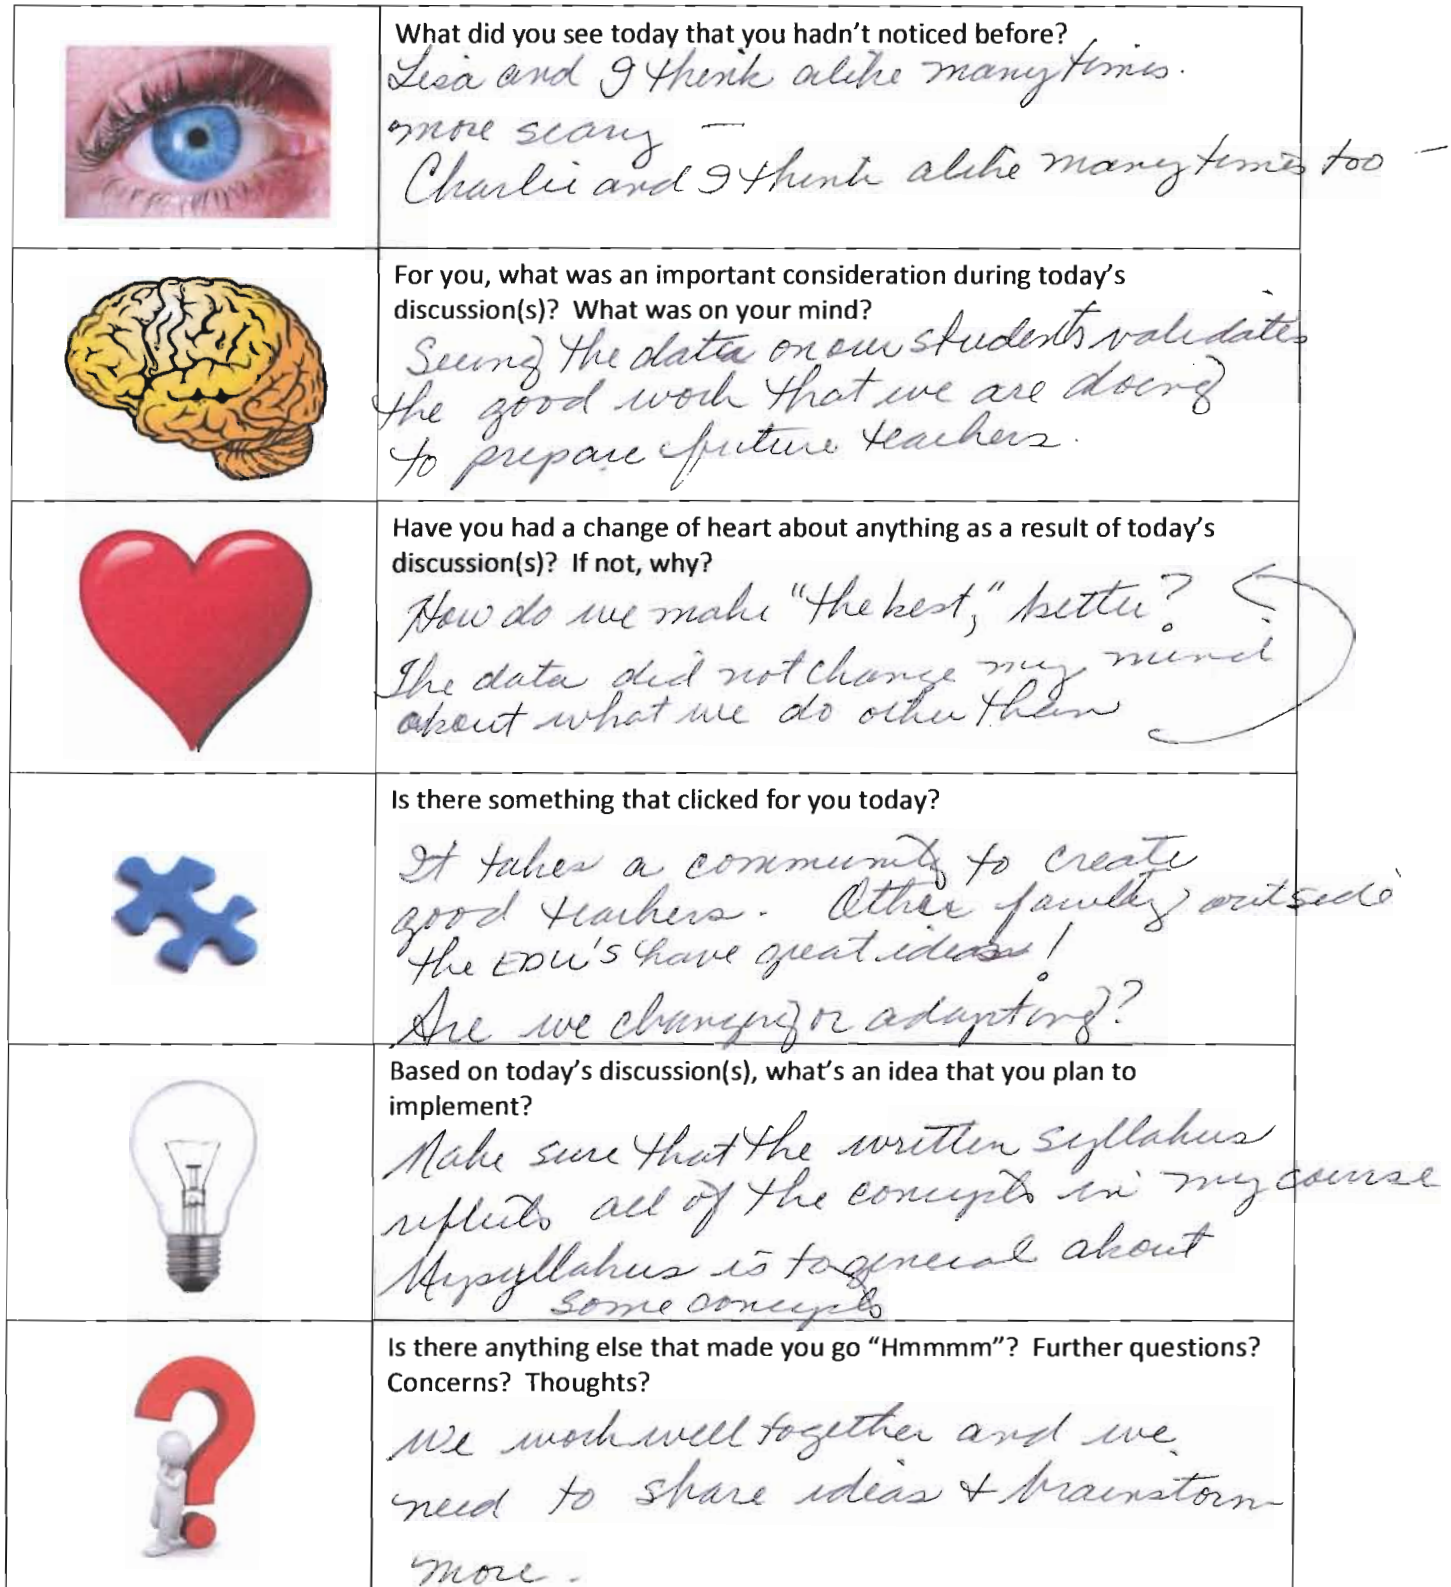 What did you see today that you hadn't noticed before?
Lisa and I think alike many times.
more scary —
Charlie and I think alike many times too —
For you, what was an important consideration during today's
discussion(s)? What was on your mind?
Seeing the data on our students validates
the good work that we are doing
to prepare future teachers.
Have you had a change of heart about anything as a result of today's
discussion(s)? If not, why?
How do we make "the best," better?
The data did not change my mind
about what we do other than
Is there something that clicked for you today?
It takes a community to create
good teachers. Other faculty outside
the EDU's have great ideas!
Are we changing or adapting?
Based on today's discussion(s), what's an idea that you plan to
implement?
Make sure that the written syllabus
reflects all of the concepts in my course
My syllabus is to general about
some concepts
Is there anything else that made you go "Hmmmm"? Further questions?
Concerns? Thoughts?
We work well together and we
need to share ideas + brainstorm
more.